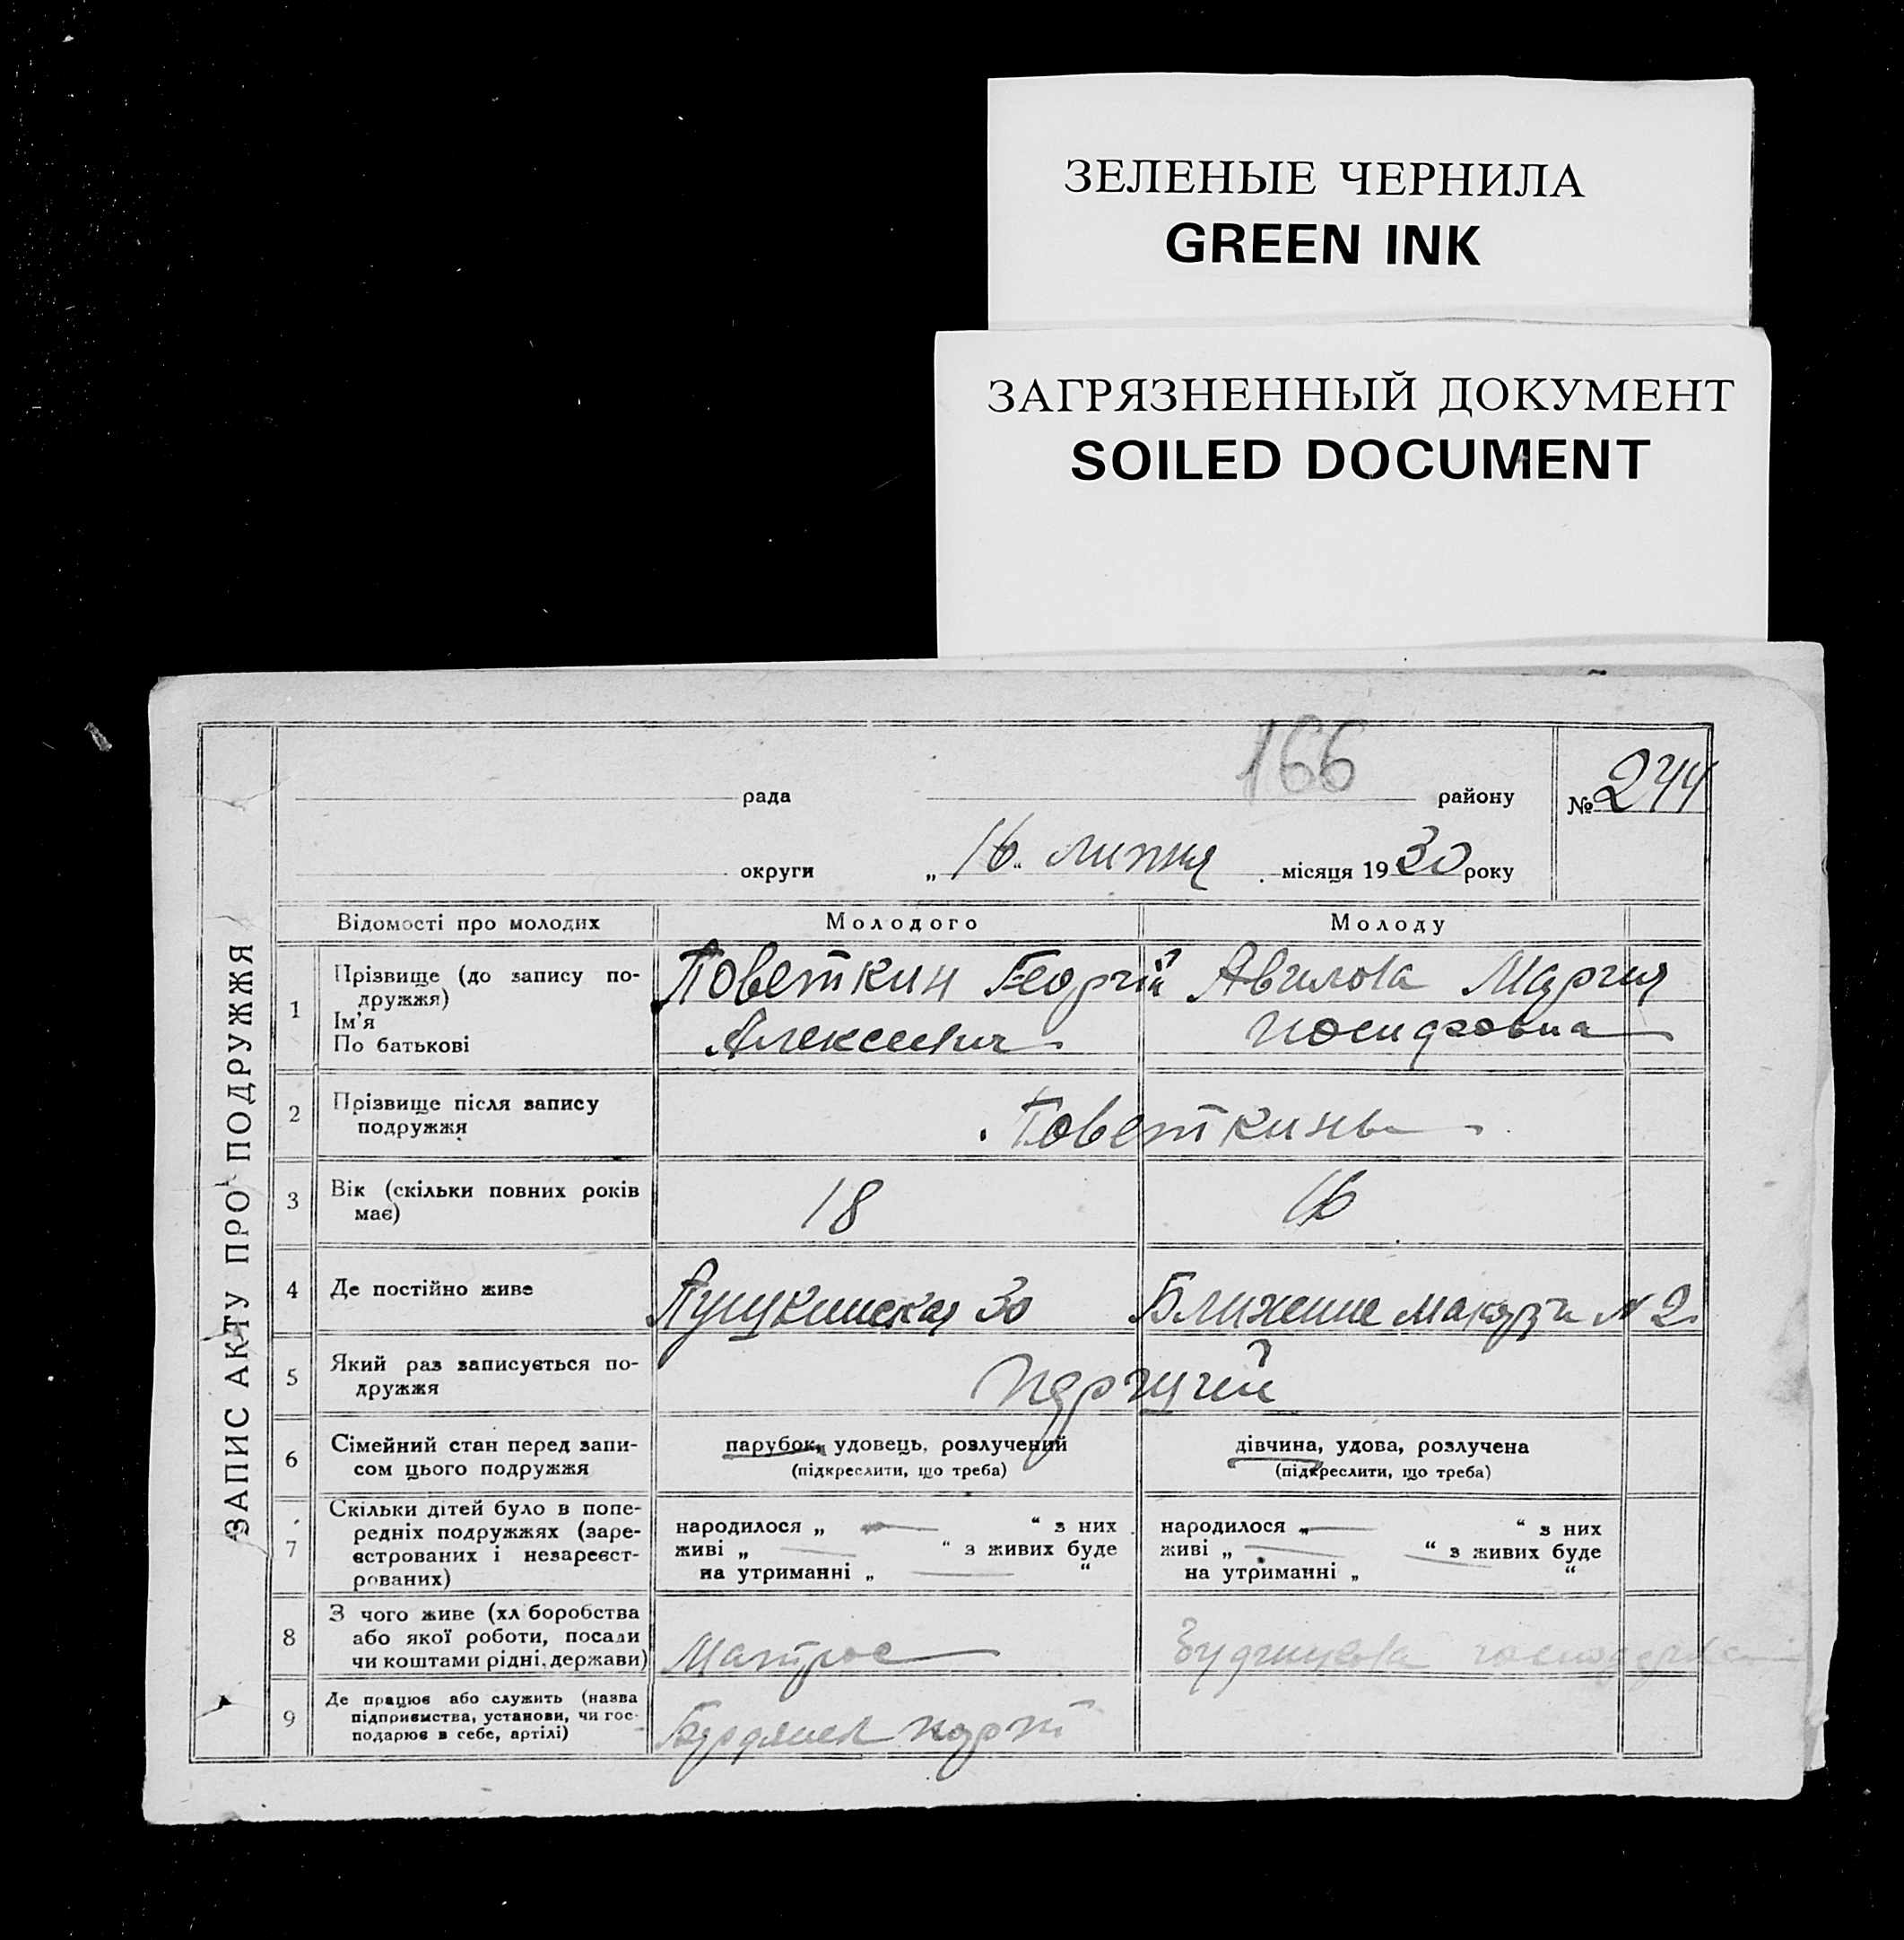 ЗЕЛЕНЫЕ ЧЕРНИЛА
GREEN INK
ЗАГРЯЗНЕННЫЙ ДОКУМЕНТ
SOILED DOCUMENT
ЗАПИС АКТУ ПРО ПОДРУЖЖЯ
166
рада району № 244
округи „ 16 “ липня місяця 1930 року
Відомості про молодих Молодого Молоду
1 Прізвище (до запису по-
дружжя)
Ім'я
По батькові
Поветкин Георгій
Алексеевич
Авилова Мария
2 Прізвище після запису
подружжя
Поветкины
3 Вік (скільки повних років
має)
18 16
4 Де постійно живе Пушкинская 30 Ближние Макорти N 2
5 Який раз записується по-
дружжя
6 Сімейний стан перед запи-
сом цього подружжя
парубок, удовець, розлучений
(підкреслити, що треба)
дівчина, удова, розлучена
(підкреслити, що треба)
7 Скільки дітей було в попе-
редніх подружжях (заре-
єстрованих і незареєст-
рованих)
народилося „ — “ з них
живі „ — “ з живих буде
на утриманні „ — “
народилося „ — “ з них
живі „ — “ з живих буде
на утриманні „ “
8 З чого живе (хліборобства
або якої роботи, посади
чи коштами рідні, держави)
Матрос
9 Де працює або служить (назва
підприємства, установи, чи гос-
подарює в себе, артілі)
порт